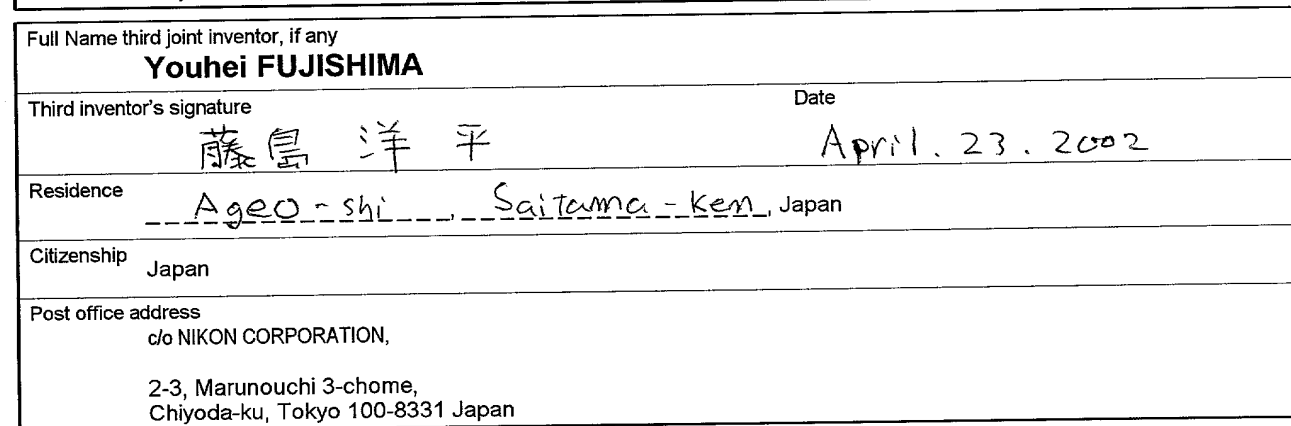 Full Name third joint inventor, if any
Youhei FUJISHIMA
Third inventor's signature
Date
藤島 洋 平
April. 23. 2002
Residence
Ageo-shi, Saitama-ken, Japan
Citizenship
Japan
Post office address
c/o NIKON CORPORATION,
2-3, Marunouchi 3-chome,
Chiyoda-ku, Tokyo 100-8331 Japan